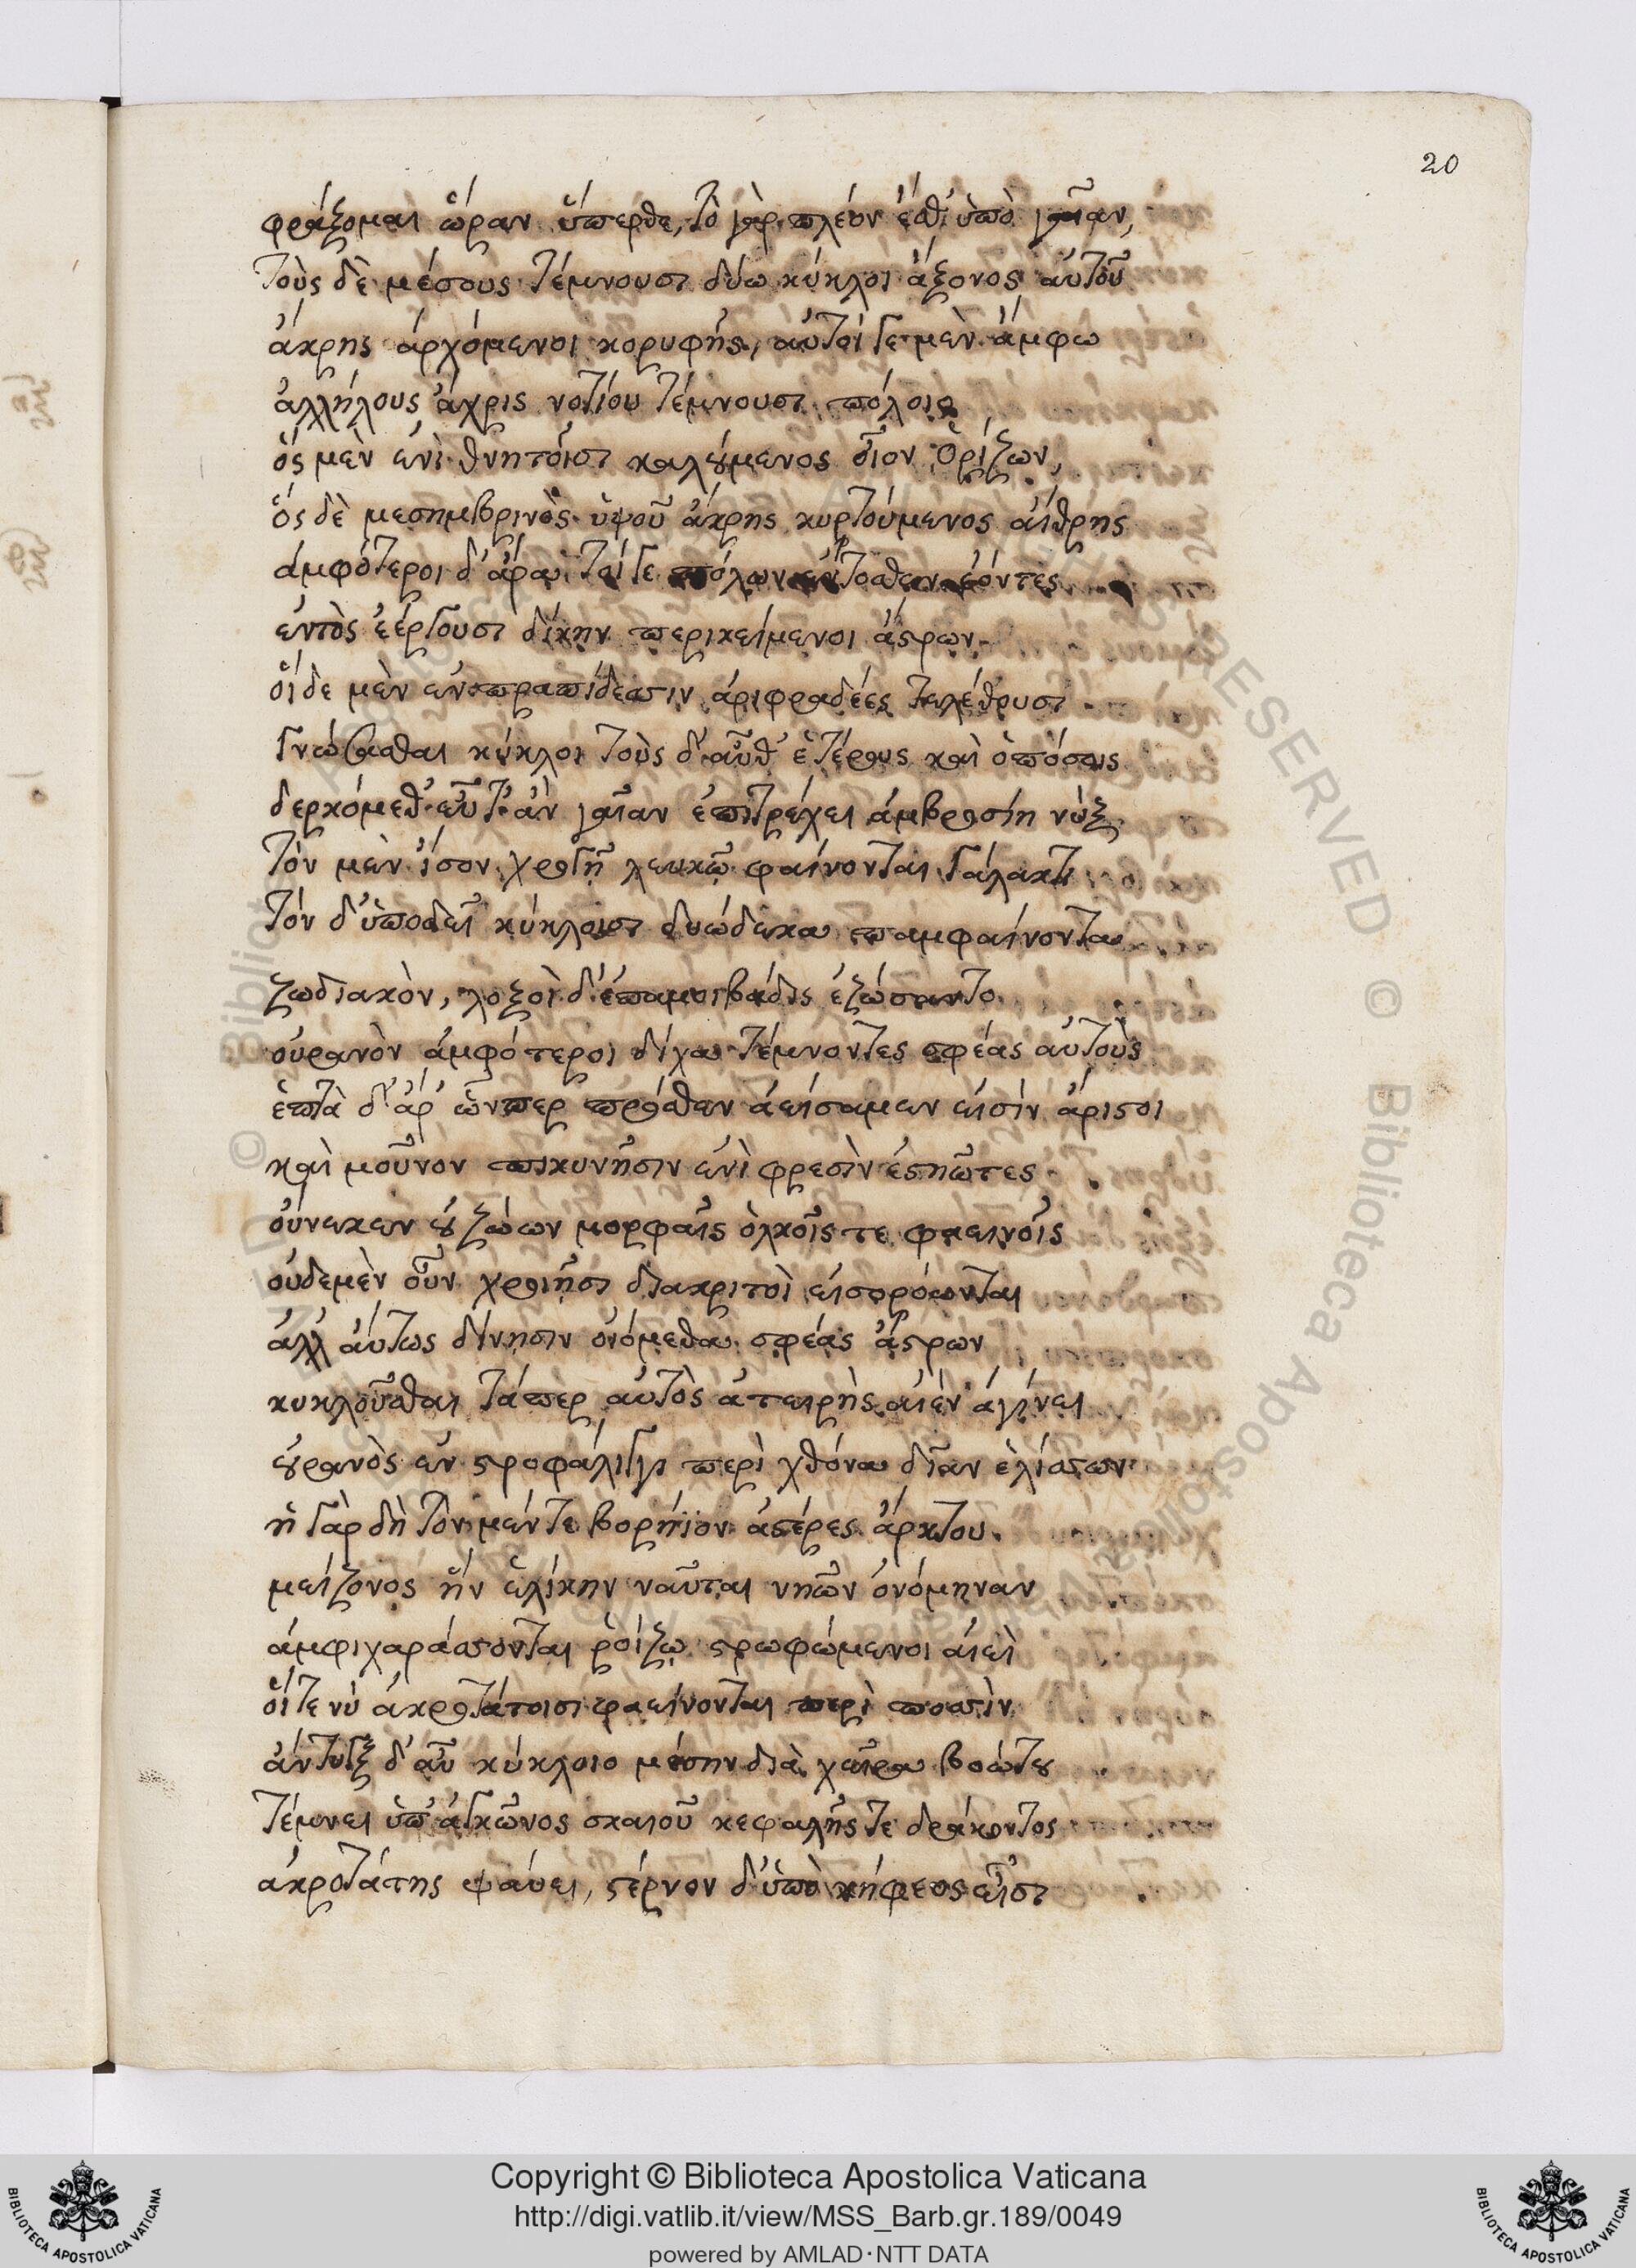 20
φράζομαι ὥραν ὕπερθε, τὸ γὰρ πλέον ἐσθ' ὑπὸ γαῖαν,
τοὺς δὲ μέσους τέμνουσι δύω κύκλοι ἄξονος αὐτοῦ
ἄκρης ἀρχόμενοι κορυφῆς, αὐτοί γε μὲν ἄμφω
ἀλλήλους ἄχρις νοτίου τέμνουσι πόλοιο
ὅς μὲν ἐνὶ θνητοῖσι καλούμενος οἷον Ὁρίζων,
ὅς δὲ μεσημβρινὸς ὑψοῦ ἄκρης κυρτούμενος αἴθρης
ἀμφότεροι δ' ἄρα τοί γε πόλων ἔντοσθεν ἐόντες
ἐντὸς ἐέργουσι δίκην περικείμενοι ἄστρων
οἵδε μὲν ἐν πραπίδεσσιν ἀριφραδέες τελέθουσι
γνώσασθαι κύκλοι τοὺς δ' αὖθ' ἑτέρους καὶ ὀπόσαις
δερκόμεθ' εὖτ' ἂν γαῖαν ἐπιτρέχει ἀμβροσίη νὺξ
τὸν μὲν ἴσον χροιῇ λευκῷ φαίνονται γάλακτι
τὸν δ' ὑποδεῖ κύκλοισι δυώδεκα παμφαίνοντα
ζωδιακὸν, λοξοὶ δ' ἐπαμοιβάδις ἐζώσαντο
οὐρανὸν ἀμφότεροι δίχα τέμνοντες σφέας αὐτοὺς
ἑπτὰ δ' ἄρ' ὧνπερ πρόσθεν ἀείσαμεν εἰσὶν ἄριστοι
καὶ μοῦνον πικυνῇσιν ἐνὶ φρεσὶν ἑστηῶτες
οὕνεκεν οὐ ζώων μορφαῖς ὁλκοῖς τε φαεινοῖς
οὐδεμὲν οὖν χροιῇσι διακριτοὶ εἰσορόωνται
ἀλλ' αὔτως δίνησιν ὀνόμεθα σφέας ἄστρων
κυκλοῦσθαι τάπερ αὐτὸς ἀτειρὴς αἰὲν ἀγίνει
οὐρανὸς ἐν στροφάλιγγι περὶ χθόνα δῖαν ἑλίσσων
ἢ γὰρ δὴ τὸν μέν τε βορήϊον ἀστέρες ἄρκτου
μείζονος ἥν ἑλίκην ναῦται νηῶν ὀνόμηναν
ἀμφιχαράσσονται ῥοίζῳ στρωφώμενοι αἰεὶ
οἵ τε νὺ ἀκροτάτοισι φαείνονται περὶ ποσσὶν
ἄντυγξ δ' αὖ κύκλοιο μέσην διὰ χεῖρα βοώτου
τέμνει ὑπ' ἀγκῶνος σκαιοῦ κεφαλῆς τε δράκοντος
ἀκροτάτης ψαύει, στέρνον δ' ὑπὸ κήφεος εἶσι
Copyright © Biblioteca Apostolica Vaticana
http://digi.vatlib.it/view/MSS_Barb.gr.189/0049
powered by AMLAD·NTT DATA